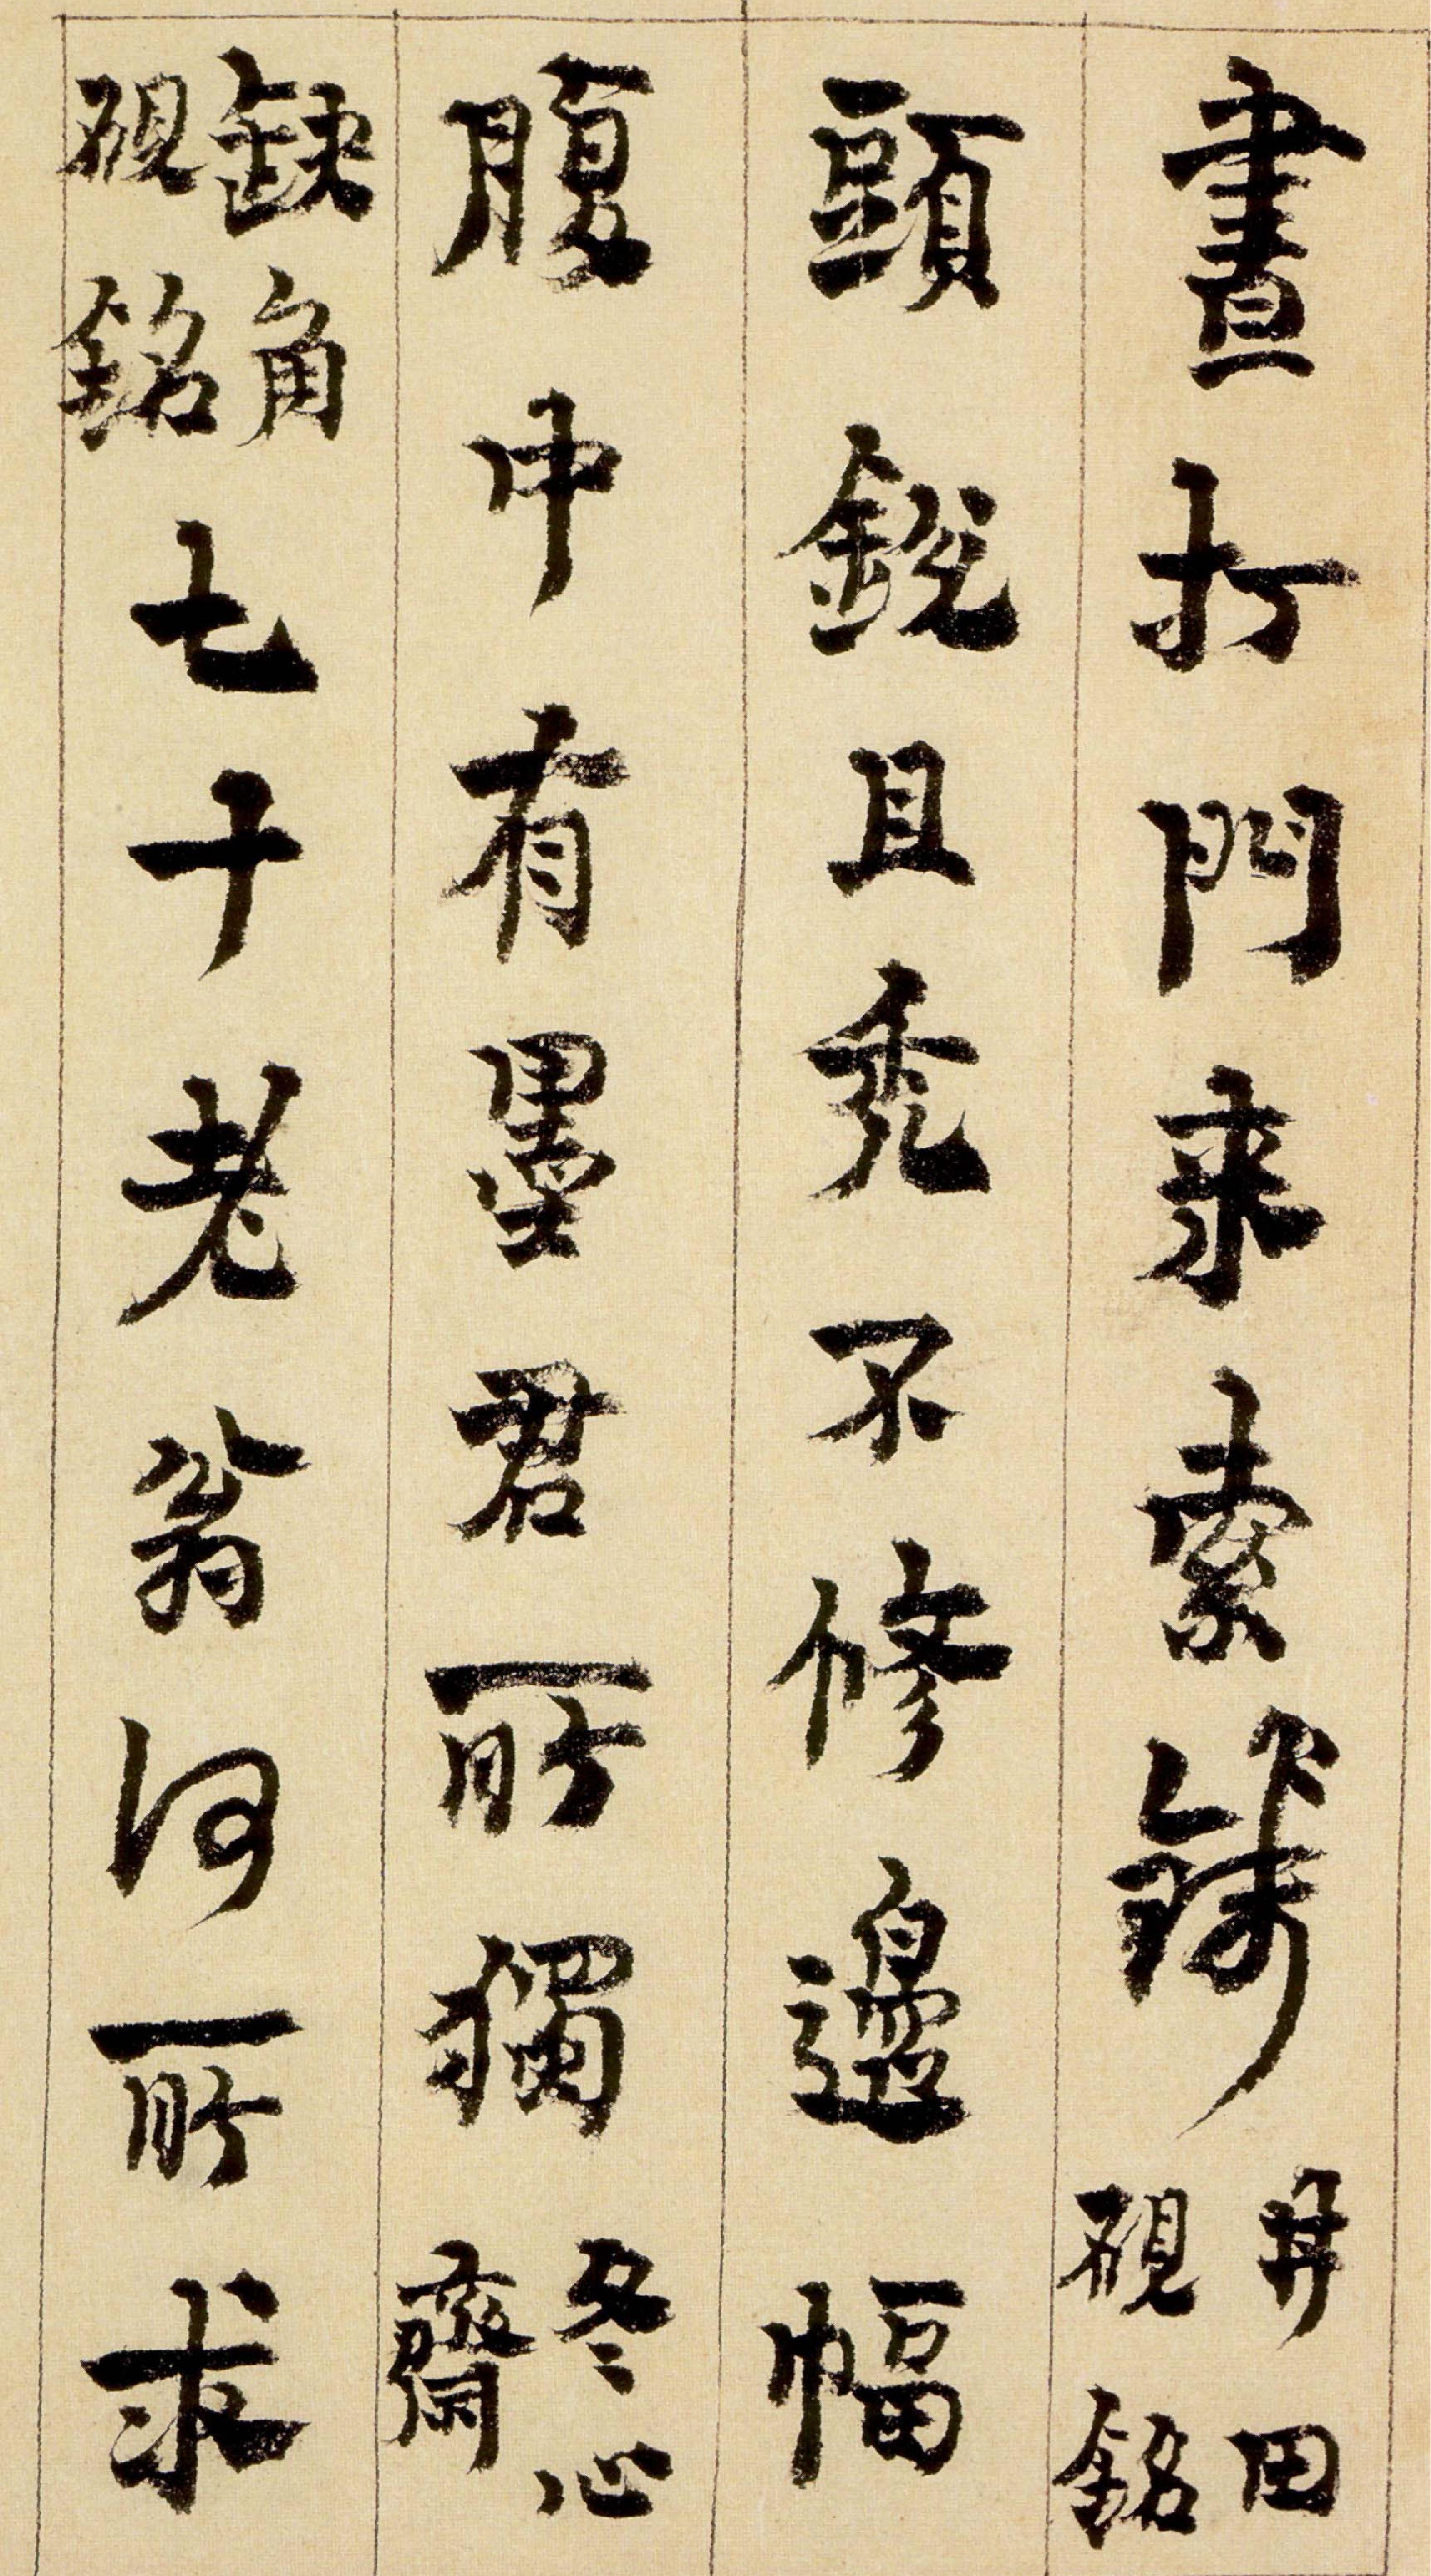 晝打門來索錢井田硯銘
頭銳且禿不修邊幅
腹中有墨君所獨冬心齋
缺角硯銘七十老翁何所求